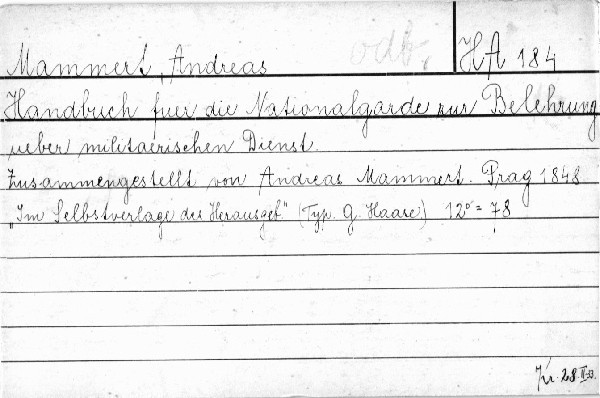 odb. HA 184
Mammert, Andreas
Handbuch fuer die Nationalgarde zur Belehrung
ueber militaerischen Dienst.
Zusammengestellt von Andreas Mammert. Prag 1848
„Im Selbstverlage des Herausgeb." (Typ. G. Haase) 12° = 78
28.